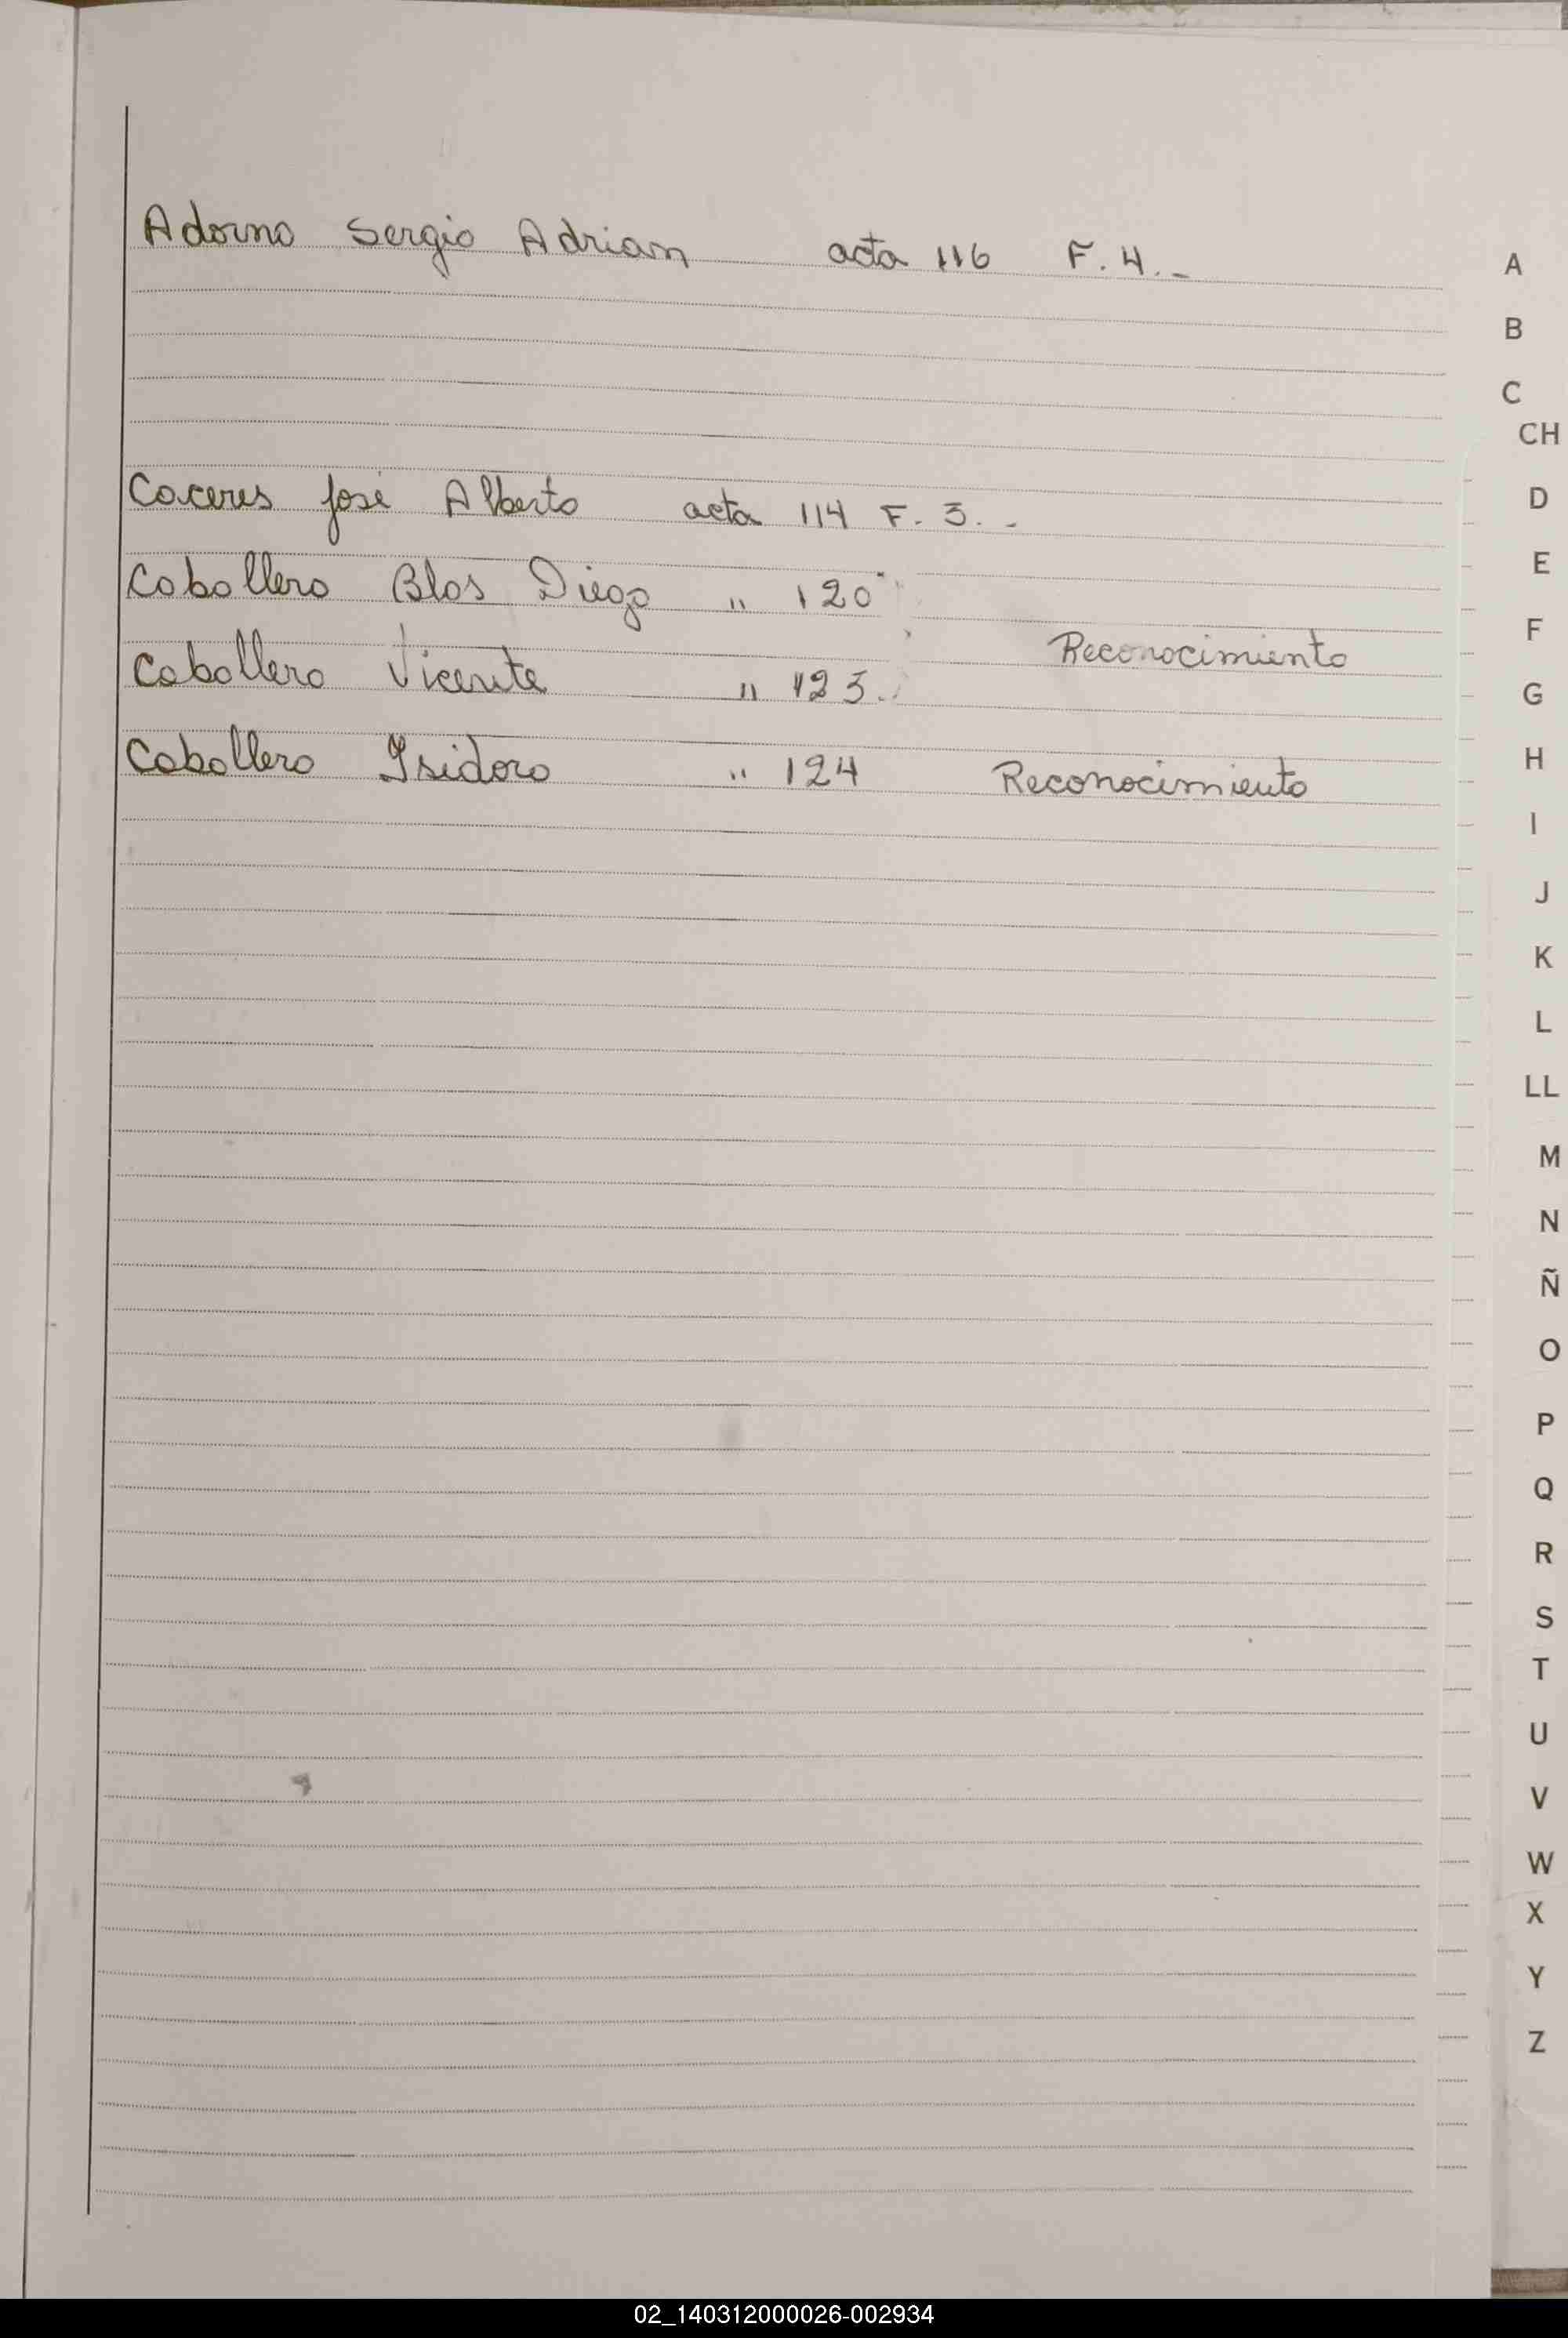 Adorno Sergio Adrian acta 116 F. 4.-
Caceres José Alberto acta 114 F. 3.-
Caballero Blas Diego " 120
Caballero Vicente " 123. Reconocimiento
Caballero Isidoro " 124 Reconocimiento
A
B
C
CH
D
E
F
G
H
I
J
K
L
LL
M
N
Ñ
O
P
Q
R
S
T
U
V
W
X
Y
Z
02_140312000026-002934